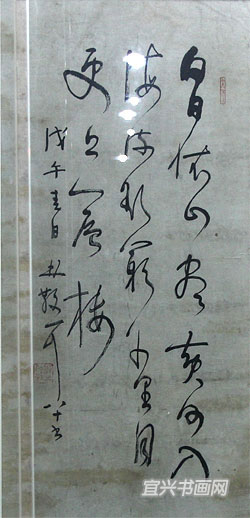 白日依山盡黄河入
海流欲窮千里目
更上一層樓
戊午春日林散耳八十書
宜兴书画网